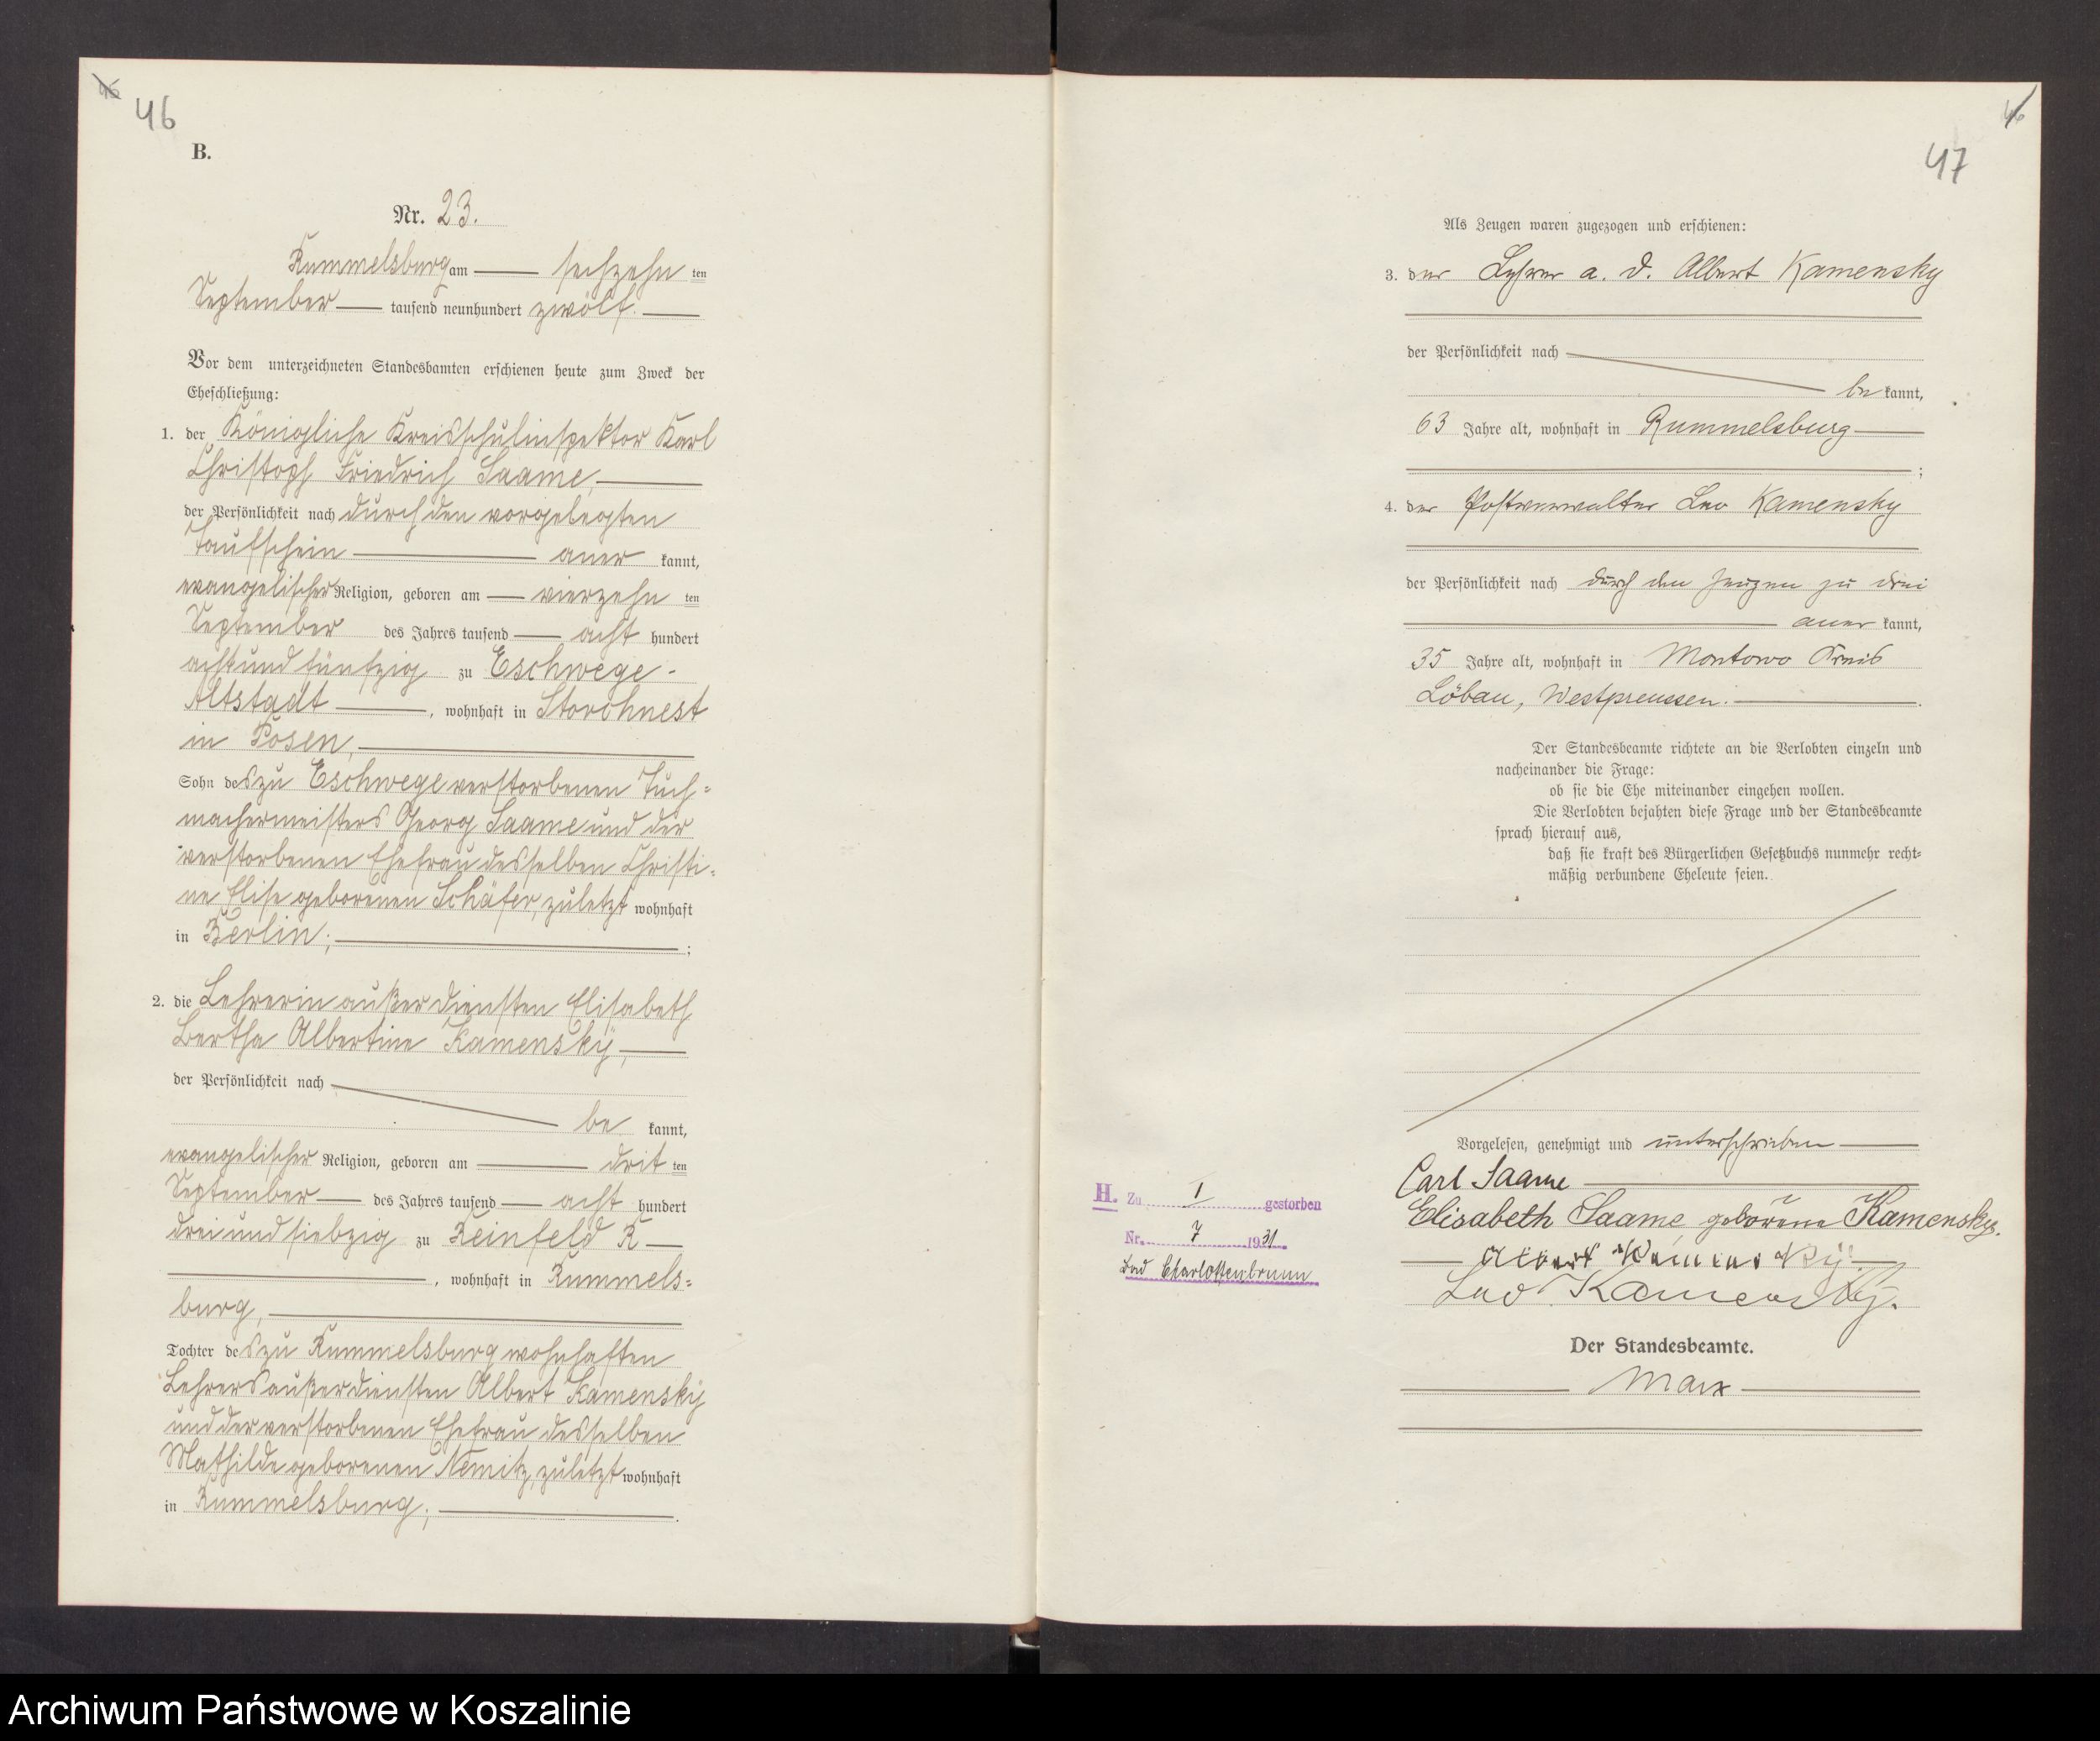 46
46
B.
Nr. 23.
Rummelsburg am sechzehn ten
September tausend neunhundert zwölf.
Vor dem unterzeichneten Standesbamten erschienen heute zum Zweck der
Eheschließung:
1. der Königliche Kreisschulinspektor Karl
Christoph Friedrich Saame,
der Persönlichkeit nach durch den vorgelegten
Taufschein aner kannt,
evangelischer Religion, geboren am vierzehn ten
September des Jahres tausend acht hundert
achtundfünfzig zu Eschwege-
Altstadt, wohnhaft in Storchnest
in Posen,
Sohn des zu Eschwege verstorbenen Tuch=
machermeisters Georg Saame und der
verstorbenen Ehefrau desselben Christi=
ne Elise geborenen Schäfer, zuletzt wohnhaft
in Berlin; ;
2. die Lehrerin außer diensten Elisabeth
Bertha Albertine Kamensky,
der Persönlichkeit nach
be kannt,
evangelischer Religion, geboren am drit ten
September des Jahres tausend acht hundert
dreiundsiebzig zu Reinfeld R
, wohnhaft in Rummels=
burg,
Tochter des zu Rummelsburg wohnhaften
Lehrers außer diensten Albert Kamensky
und der verstorbenen Ehefrau desselben
Mathilde geborenen Nemitz, zuletzt wohnhaft
in Rummelsburg; .
46
47
Als Zeugen waren zugezogen und erschienen:
3. der Lehrer a. D. Albert Kamensky
der Persönlichkeit nach
be kannt,
63 Jahre alt, wohnhaft in Rummelsburg
;
4. der Postverwalter Leo Kamensky
der Persönlichkeit nach durch den Zeugen zu drei
aner kannt,
35 Jahre alt, wohnhaft in Montowo Kreis
Löbau, Westpreussen. .
Der Standesbeamte richtete an die Verlobten einzeln und
nacheinander die Frage:
ob sie die Ehe miteinander eingehen wollen.
Die Verlobten bejahten diese Frage und der Standesbeamte
sprach hierauf aus,
daß sie kraft des Bürgerlichen Gesetzbuchs nunmehr recht=
mäßig verbundene Eheleute seien.
Vorgelesen, genehmigt und unterschrieben
Carl Saame
Elisabeth Saame, geborene Kamensky.
Albert Kamensky
Leo Kamensky.
Der Standesbeamte.
Marx
H. Zu 1 gestorben
Nr. 7 1931
Bad Charlottenbrunn
Archiwum Państwowe w Koszalinie